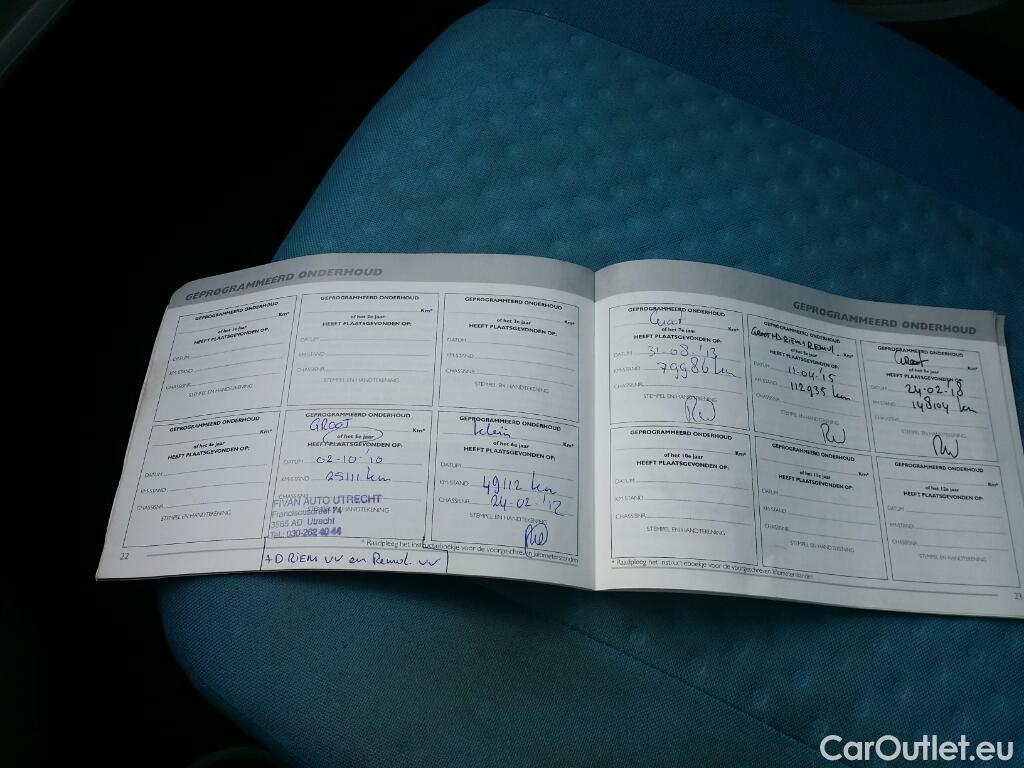 GEPROGRAMMEERD ONDERHOUD
GEPROGRAMMEERD ONDERHOUD
Km*
of het 1e jaar
HEEFT PLAATSGEVONDEN OP:
DATUM
KM-STAND
CHASSISNR.
STEMPEL EN HANDTEKENING
GEPROGRAMMEERD ONDERHOUD
Km*
of het 2e jaar
HEEFT PLAATSGEVONDEN OP:
DATUM
KM-STAND
CHASSISNR.
STEMPEL EN HANDTEKENING
GEPROGRAMMEERD ONDERHOUD
Km*
of het 3e jaar
HEEFT PLAATSGEVONDEN OP:
DATUM
KM-STAND
CHASSISNR.
STEMPEL EN HANDTEKENING
GEPROGRAMMEERD ONDERHOUD
Km*
of het 4e jaar
HEEFT PLAATSGEVONDEN OP:
DATUM
KM-STAND
CHASSISNR.
STEMPEL EN HANDTEKENING
GEPROGRAMMEERD ONDERHOUD
GROOT Km*
of het 5e jaar
HEEFT PLAATSGEVONDEN OP:
DATUM 02-10-'10
KM-STAND 25111 km
CHASSISNR.
FIVAN AUTO UTRECHT
Franciscusdreef 74
3565 AD Utrecht
Tel.: 030-262 40 44
+ D-RIEM VV en Remvl. VV
GEPROGRAMMEERD ONDERHOUD
klein Km*
of het 6e jaar
HEEFT PLAATSGEVONDEN OP:
DATUM
KM-STAND 49112 km
CHASSISNR. 24-02-'12
STEMPEL EN HANDTEKENING
* Raadpleeg het instructieboekje voor de voorgeschreven kilometerstanden
22
GEPROGRAMMEERD ONDERHOUD
GEPROGRAMMEERD ONDERHOUD
Groot Km*
of het 7e jaar
HEEFT PLAATSGEVONDEN OP:
DATUM 31-08-'13
KM-STAND 79986 km
CHASSISNR.
STEMPEL EN HANDTEKENING
GEPROGRAMMEERD ONDERHOUD
Groot+D-RIEM/REMVL. Km*
of het 8e jaar
HEEFT PLAATSGEVONDEN OP:
DATUM 11-04-'15
KM-STAND 112935 km
CHASSISNR.
STEMPEL EN HANDTEKENING
GEPROGRAMMEERD ONDERHOUD
Groot Km*
of het 9e jaar
HEEFT PLAATSGEVONDEN OP:
DATUM 24-02-'18
KM-STAND 148104 km
CHASSISNR.
STEMPEL EN HANDTEKENING
GEPROGRAMMEERD ONDERHOUD
Km*
of het 10e jaar
HEEFT PLAATSGEVONDEN OP:
DATUM
KM-STAND
CHASSISNR.
STEMPEL EN HANDTEKENING
GEPROGRAMMEERD ONDERHOUD
Km*
of het 11e jaar
HEEFT PLAATSGEVONDEN OP:
DATUM
KM-STAND
CHASSISNR.
STEMPEL EN HANDTEKENING
GEPROGRAMMEERD ONDERHOUD
Km*
of het 12e jaar
HEEFT PLAATSGEVONDEN OP:
DATUM
KM-STAND
CHASSISNR.
STEMPEL EN HANDTEKENING
* Raadpleeg het instructieboekje voor de voorgeschreven kilometerstanden
23
CarOutlet.eu